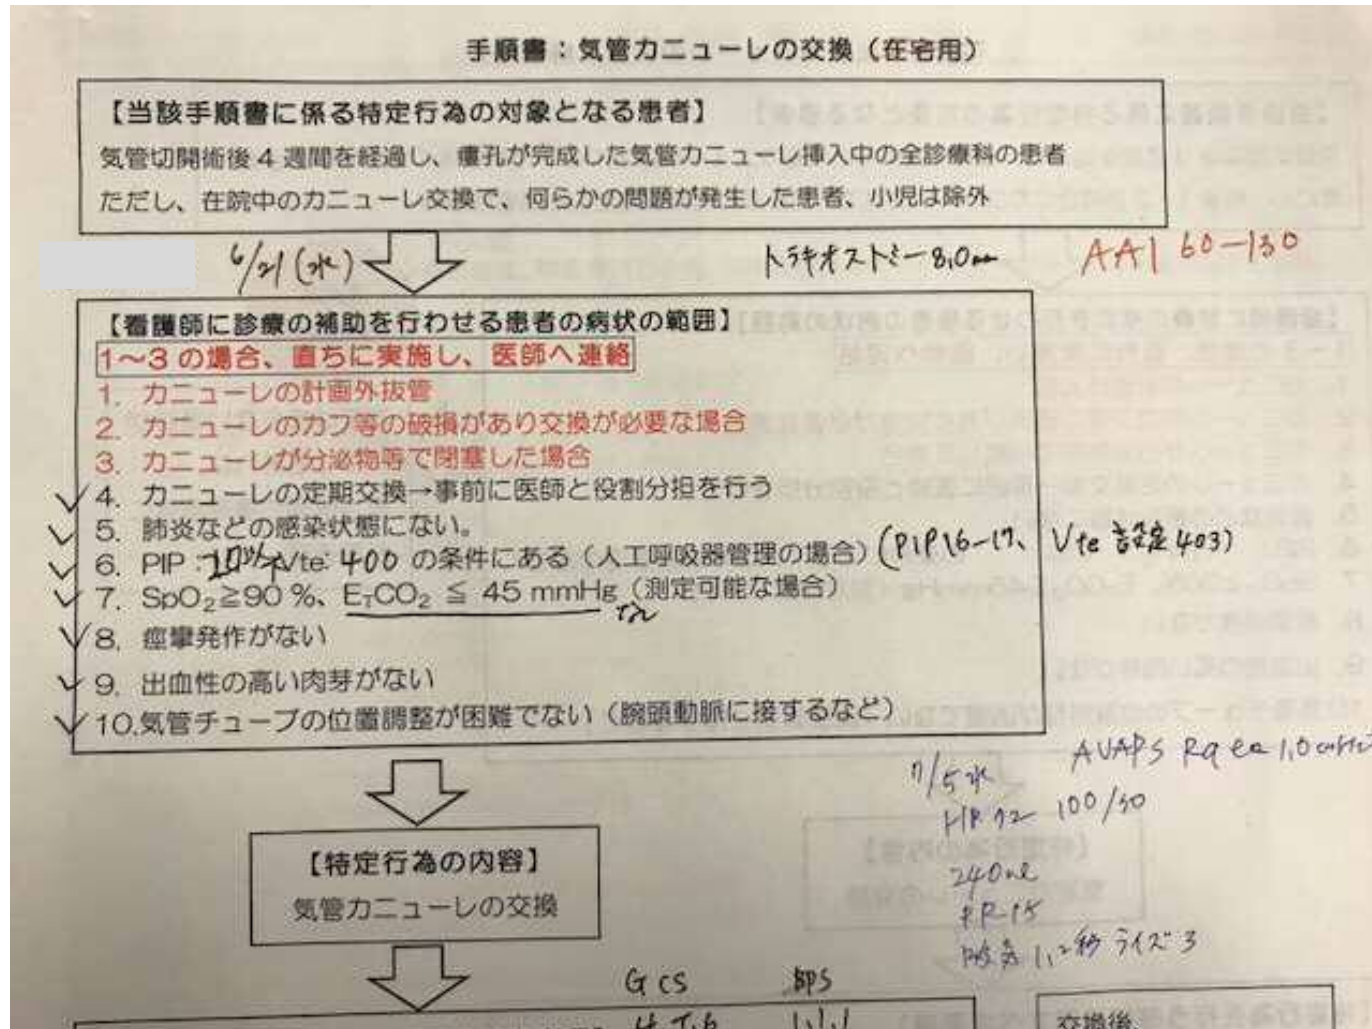 手順書：気管カニューレの交換（在宅用）
【当該手順書に係る特定行為の対象となる患者】
気管切開術後 4 週間を経過し、瘻孔が完成した気管カニューレ挿入中の全診療科の患者
ただし、在院中のカニューレ交換で、何らかの問題が発生した患者、小児は除外
6/21(水)
トラキオストミー 8.0mm
AAI 60-130
【看護師に診療の補助を行わせる患者の病状の範囲】
1～3 の場合、直ちに実施し、医師へ連絡
1. カニューレの計画外抜管
2. カニューレのカフ等の破損があり交換が必要な場合
3. カニューレが分泌物等で閉塞した場合
✓ 4. カニューレの定期交換→事前に医師と役割分担を行う
✓ 5. 肺炎などの感染状態にない。
✓ 6. PIP : Vte: 400 の条件にある（人工呼吸器管理の場合）(PIP16-17、Vte 設定 403)
✓ 7. SpO₂≧90 %、EᴛCO₂ ≦ 45 mmHg（測定可能な場合）
✓ 8. 痙攣発作がない
✓ 9. 出血性の高い肉芽がない
✓ 10.気管チューブの位置調整が困難でない（腕頭動脈に接するなど）
AVAPS Rate 1.0
7/5 水
HR 72 100/50
【特定行為の内容】
気管カニューレの交換
240ml
RR15
吸気 1.2秒 ライズ 3
GCS BPS
交換後、